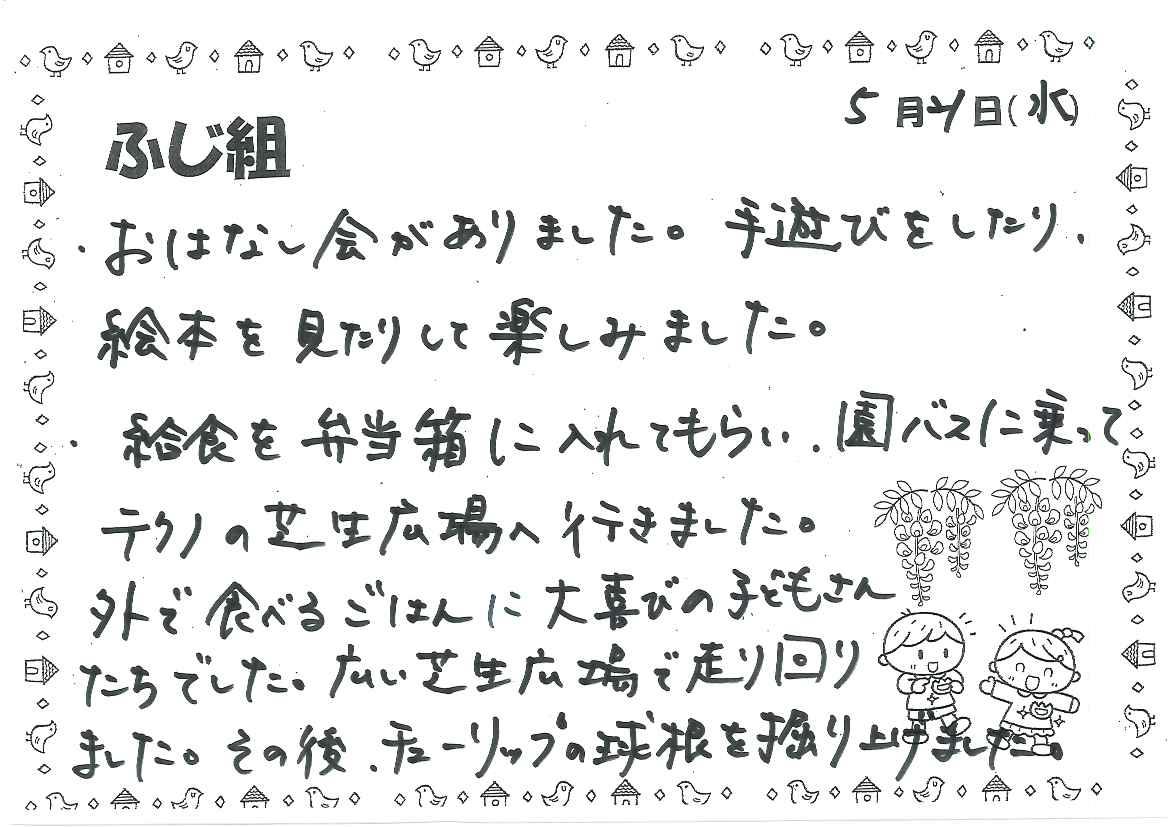 5月21日(水)
ふじ組
・おはなし会がありました。手遊びをしたり、
絵本を見たりして楽しみました。
・給食を弁当箱に入れてもらい、園バスに乗って
テクノの芝生広場へ行きました。
外で食べるごはんに大喜びの子どもさん
たちでした。広い芝生広場で走り回り
ました。その後、チューリップの球根を掘り上げました。